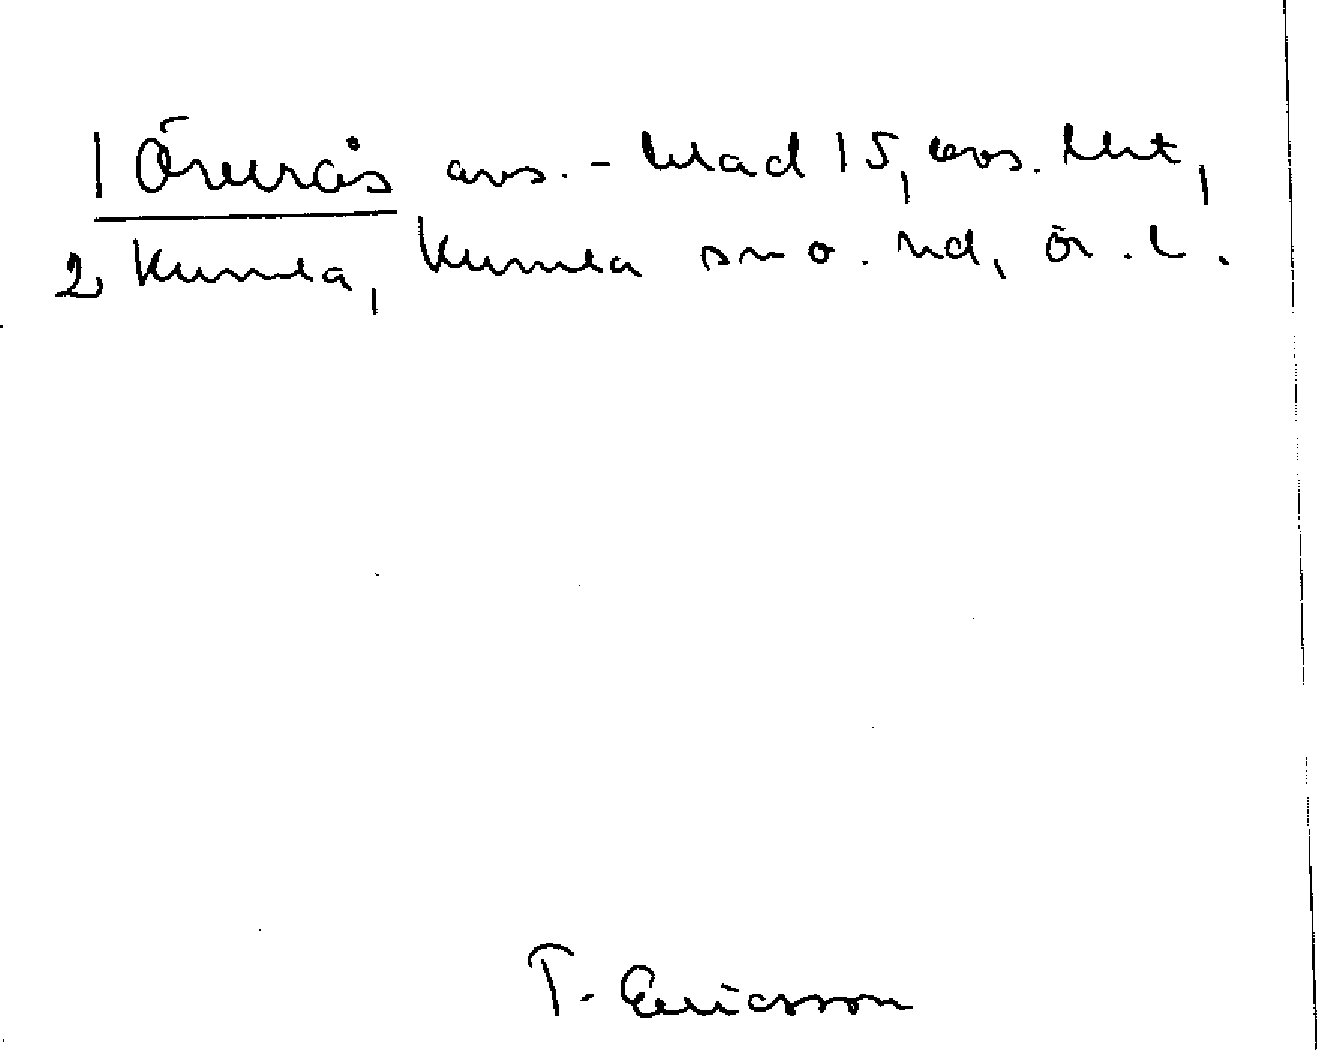 1 Öneräs avs. - blad 15, avs. lht,
2 Kumla, Kumla sn o. hd, ör. l.
T. Ericsson